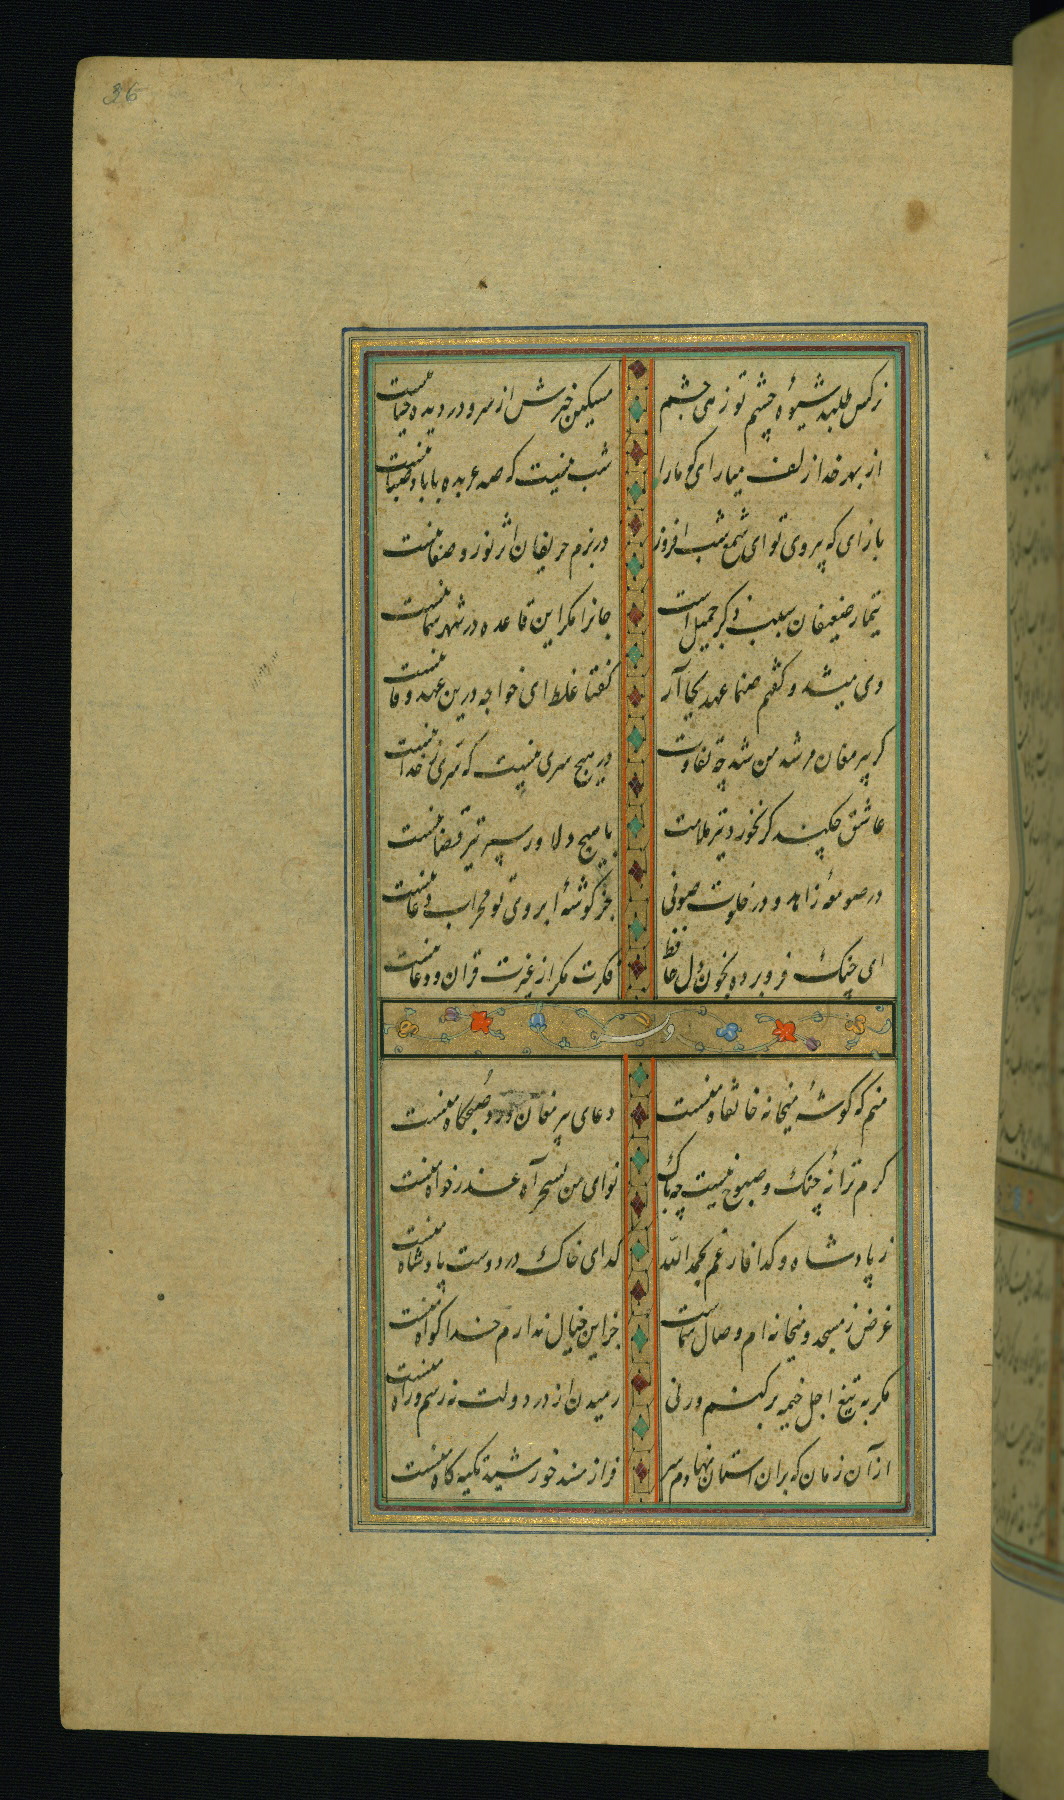 36
نرگس طلبد شیوهٔ چشم تو زهی چشم
مسکین خبرش از سر و در دیده حیا نیست
از بهر خدا زلف میارای که ما را
شب نیست که صد عربده با باد صبا نیست
بازای که بی روی تو ای شمع شب افروز
در بزم حریفان اثر نور و صفا نیست
تیمار ضعیفان سبب ذکر جمیل است
جانا مکر این قاعده در شهر شما نیست
دی میشد و کفتم صنما عهد بجا آر
کفتا غلط ای خواجه درین عهد وفا نیست
کر پیر مغان مرشد من شد چه تفاوت
در هیچ سری نیست که سری ز خدا نیست
عاشق چکند کر نخورد تیر ملامت
با هیچ دلاور سپر تیر قضا نیست
در صومعهٔ زاهد و در خلوت صوفی
جز کوشهٔ ابروی تو محراب دعا نیست
ای چنک فرو برده بخون دل حافظ
فکرت مکر از غیرت قران و دعا نیست
وله
منم که کوشهٔ میخانه خانقاه منست
دعای پیر مغان ورد صبحکاه منست
کرم ترانهٔ چنک و صبوح نیست چه باک
نوای من بسحر آه عذرخواه منست
ز پادشاه و کدا فارغم بحمد الله
کدای خاک در دوست پادشاه منست
غرض ز مسجد و میخانه ام وصال شماست
جز این خیال ندارم خدا کواه منست
مکر به تیغ اجل خیمه برکنم ور نی
رمیدن از در دولت نه رسم و راه منست
از آن زمان که بران استان نهادم سر
فراز مسند خورشید تکیه کاه منست